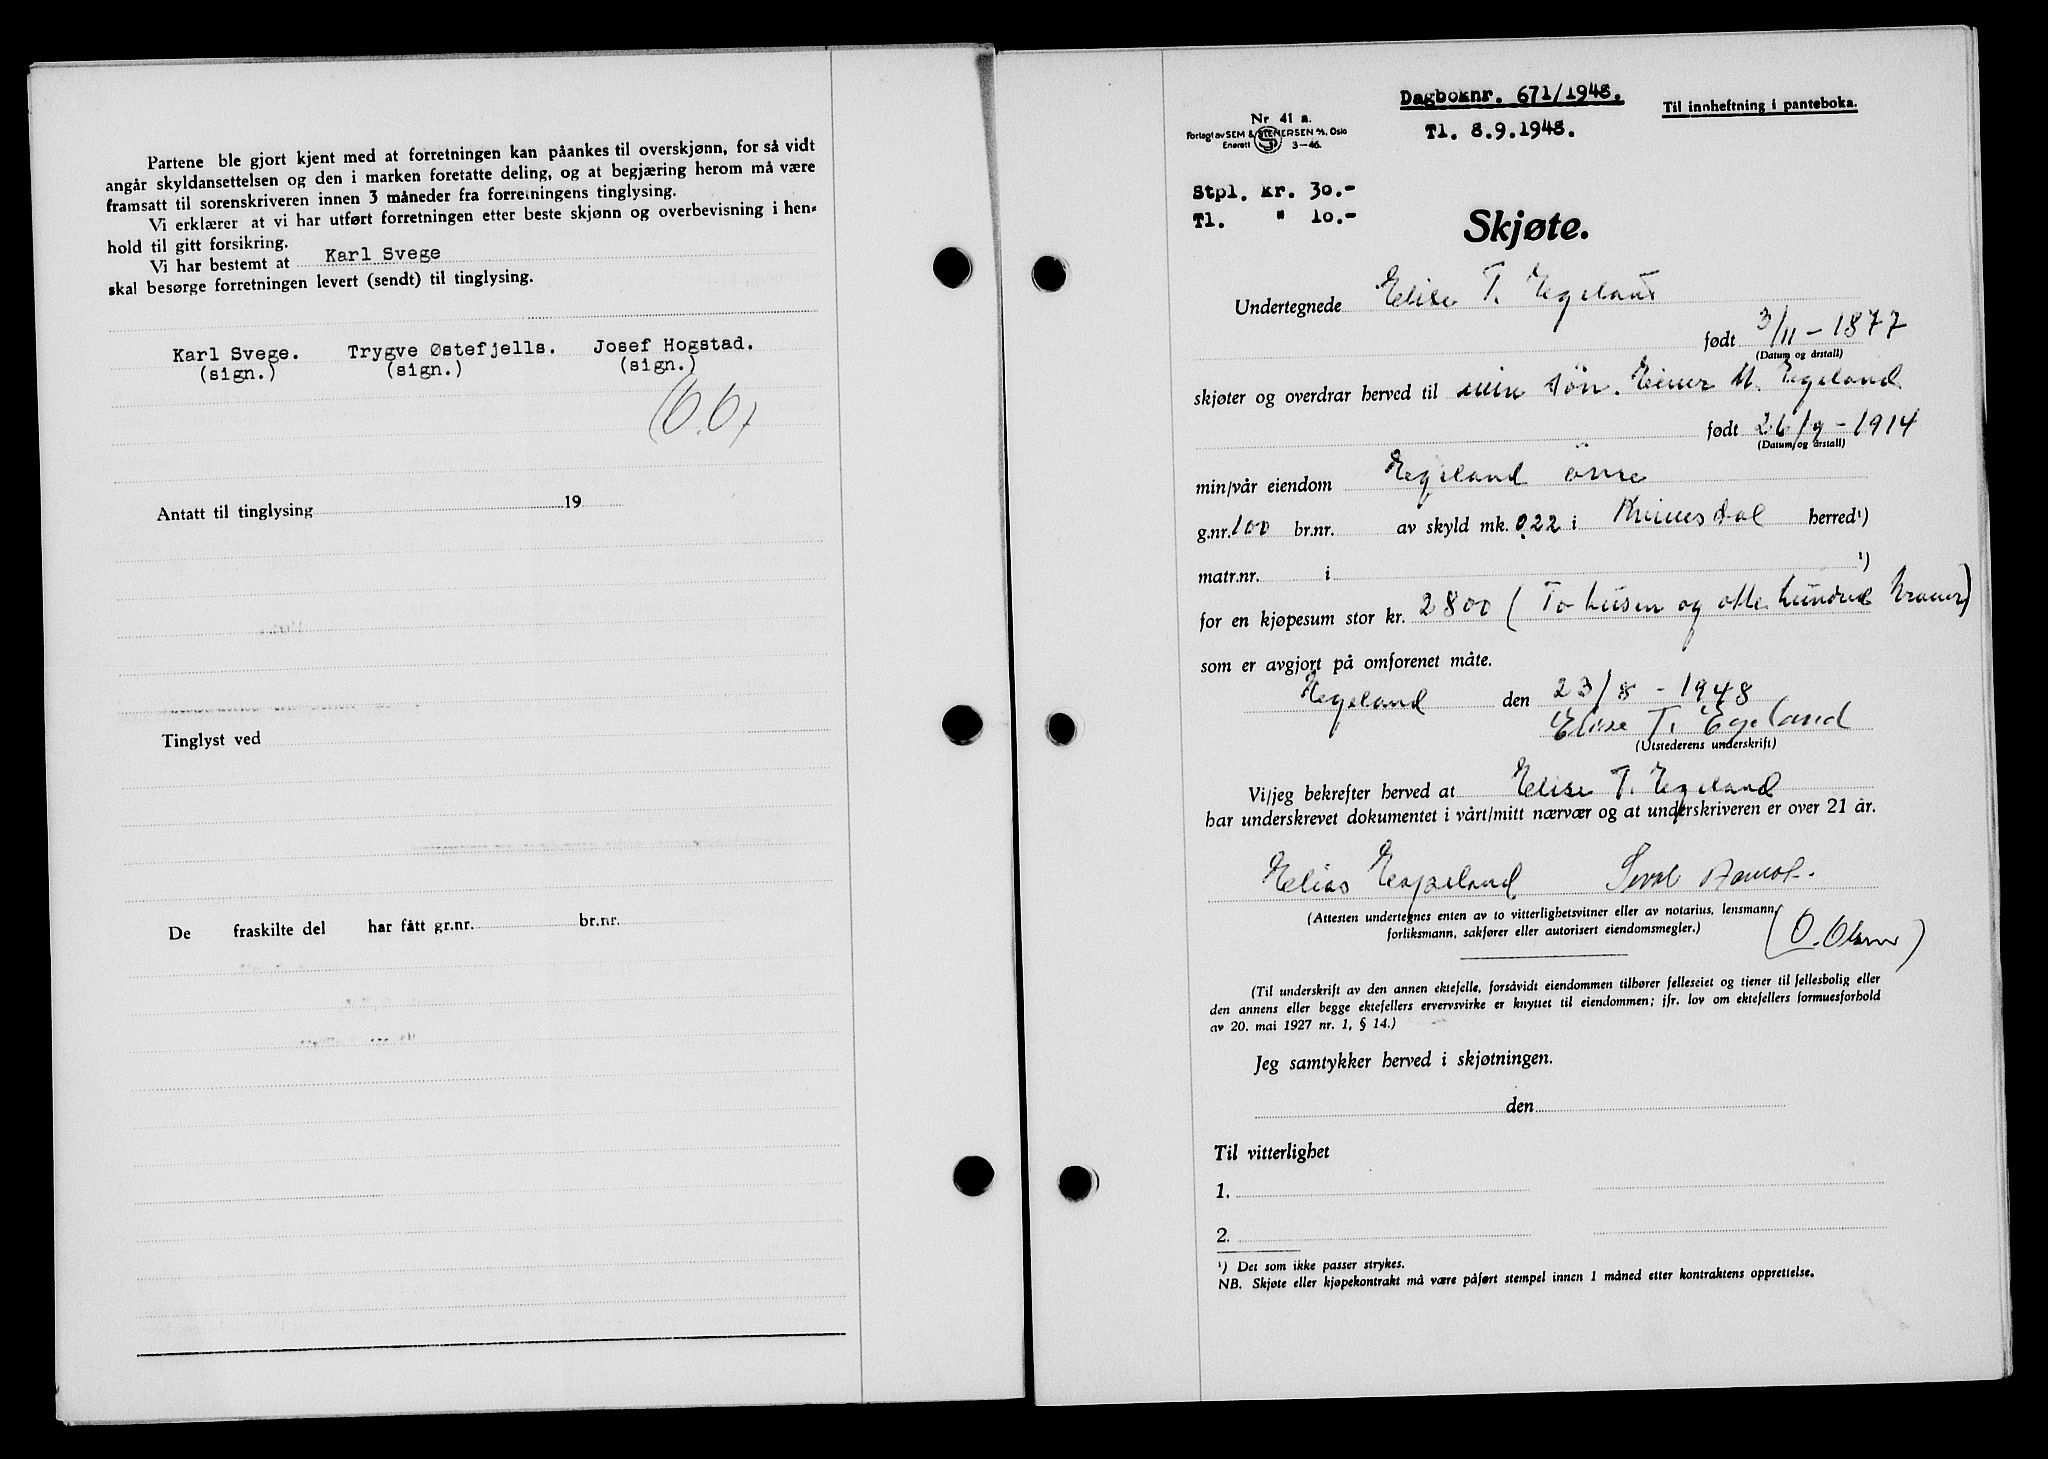 Partene ble gjort kjent med at forretningen kan påankes til overskjønn, for så vidt
angår skyldansettelsen og den i marken foretatte deling, og at begjæring herom må være
framsatt til sorenskriveren innen 3 måneder fra forretningens tinglysing.
Vi erklærer at vi har utført forretningen etter beste skjønn og overbevisning i hen-
hold til gitt forsikring.
Vi har bestemt at Karl Svege
skal besørge forretningen levert (sendt) til tinglysing.
Karl Svege. Trygve Østefjells. Josef Hogstad.
(sign.) (sign.) (sign.)
Antatt til tinglysing 19
Tinglyst ved
De fraskilte del har fått gr.nr. br.nr.
Dagboknr. 671/1948. Til innheftning i panteboka.
Tl. 8.9.1948.
Nr. 41 a.
Forlagt av SEM & STENERSEN A/S, Oslo
Enerett 3-46.
Stpl. kr. 30.-
Tl. " 10.-
Skjøte.
Undertegnede Elise T. Egeland
født 3/11 - 1877
(Datum og årstall)
skjøter og overdrar herved til min sön. Einar M. Egeland
født 26/9 - 1914
(Datum og årstall)
min/vår eiendom Egeland
g.nr. 100 br.nr. av skyld mk. 0.22 i Kvinesdal herred¹)
matr.nr. i ¹)
for en kjøpesum stor kr. 2800 (To tusen og otte hundred kroner)
som er avgjort på omforenet måte.
Egeland den 23/8 - 1948
Elise T. Egeland
(Utstederens underskrift)
Vi/jeg bekrefter herved at Elise T. Egeland
har underskrevet dokumentet i vårt/mitt nærvær og at underskriveren er over 21 år.
Elias Egeland
(Attesten undertegnes enten av to vitterlighetsvitner eller av notarius, lensmann,
forliksmann, sakfører eller autorisert eiendomsmegler.) (O. Olsen)
(Til underskrift av den annen ektefelle, forsåvidt eiendommen tilhører felleseiet og tjener til fellesbolig eller
den annens eller begge ektefellers ervervsvirke er knyttet til eiendommen; jfr. lov om ektefellers formuesforhold
av 20. mai 1927 nr. 1, § 14.)
Jeg samtykker herved i skjøtningen.
den
Til vitterlighet
1.
2.
¹) Det som ikke passer strykes.
NB. Skjøte eller kjøpekontrakt må være påført stempel innen 1 måned etter kontraktens opprettelse.